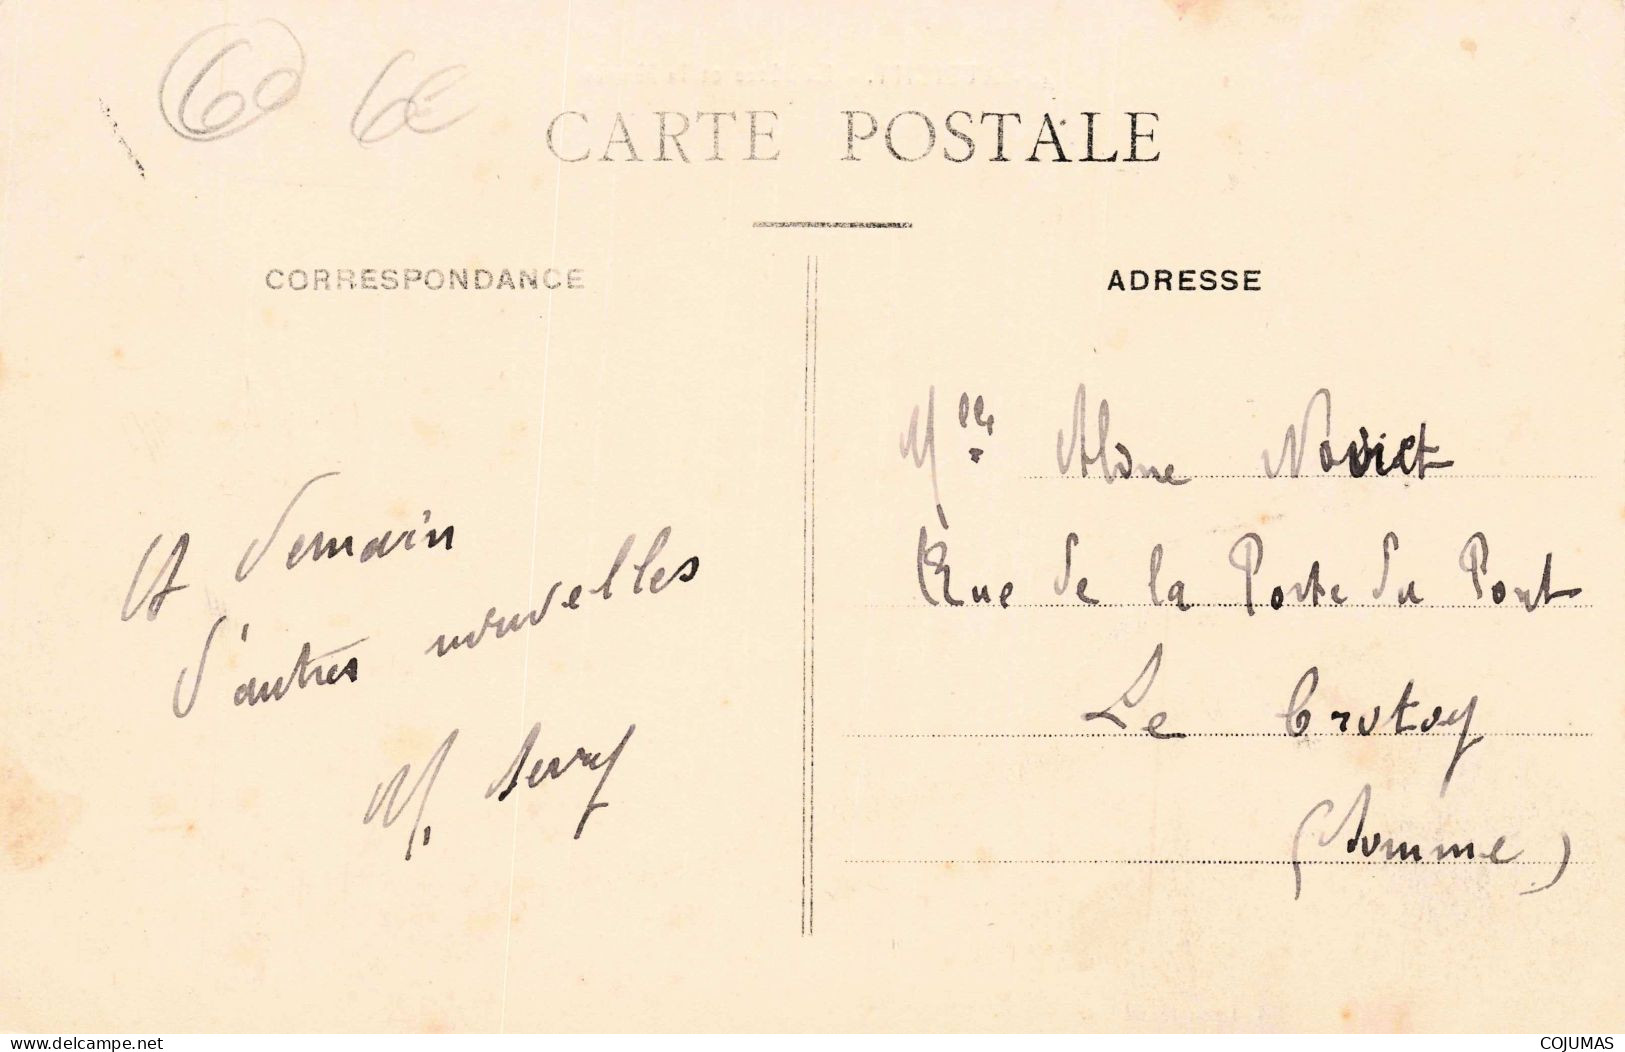 60 6€
CARTE POSTALE
CORRESPONDANCE
A demain
d'autres nouvelles
M.
ADRESSE
Mlle Aline
Rue de la Porte du Pont
Le Crotoy
(Somme)
delcampe.net
COJUMAS